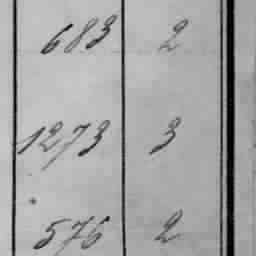 683 2
1273 3
576 2